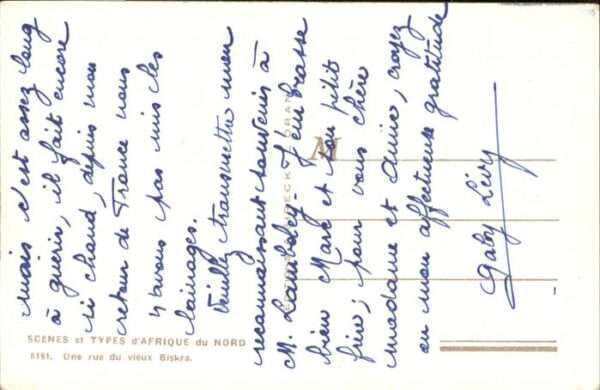 mais c'est assez long
à guérir, il fait encore
si chaud, depuis mon
retour de France nous
n'avons pas mis les
lainages.
Veuillez transmettre mon
reconnaissant souvenir à
M. J'embrasse
bien Marc et son petit
frère; pour vous chère
madame et amie, croyez
en mon affectueuse gratitude
Gaby Lévy
SCENES et TYPES d'AFRIQUE du NORD
8191. Une rue du vieux Biskra.
ORAN
M